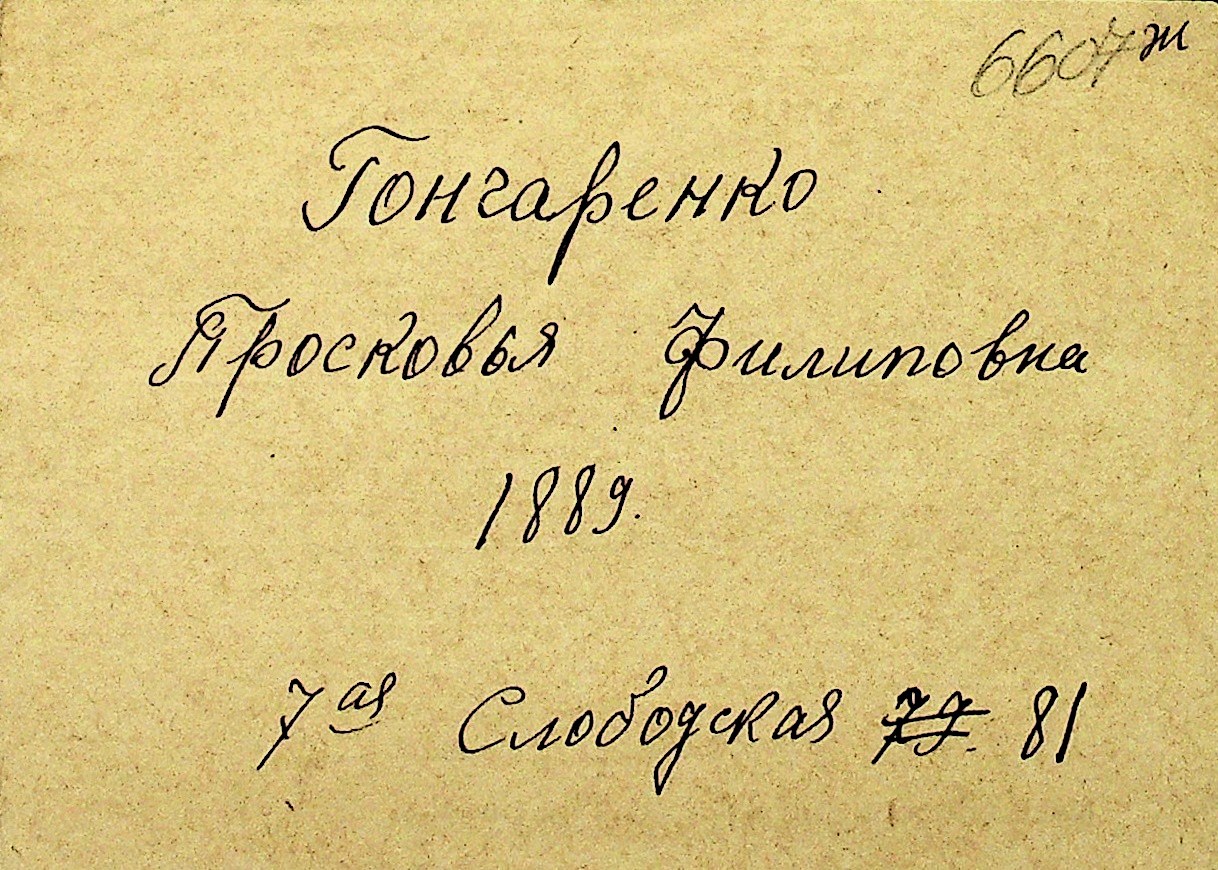 6607 ж
Гончаренко
Просковья Филиповна
1889.
7ая Слободская 79. 81